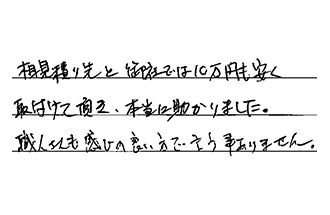 相見積り先と御社では10万円も安く
取付けて頂き、本当に助かりました。
職人さんも感じの良い方で言う事ありません。